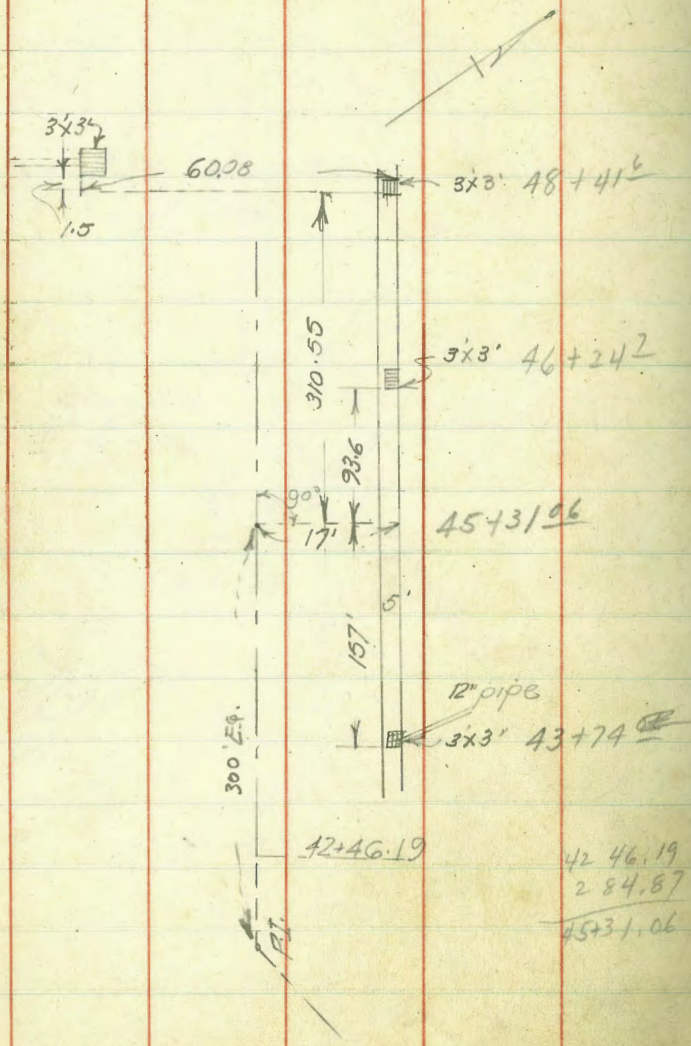 3'x3'
60.08
3x3' 48 + 41 6
1.5
310.55
3'x3' 46 + 24 7
93.6
90°
17' 45+31 06
5'
157'
12" pipe
3'x3" 43+74
300'
42+46.19
42 46.19
2 84.87
45+31.06
P.I.